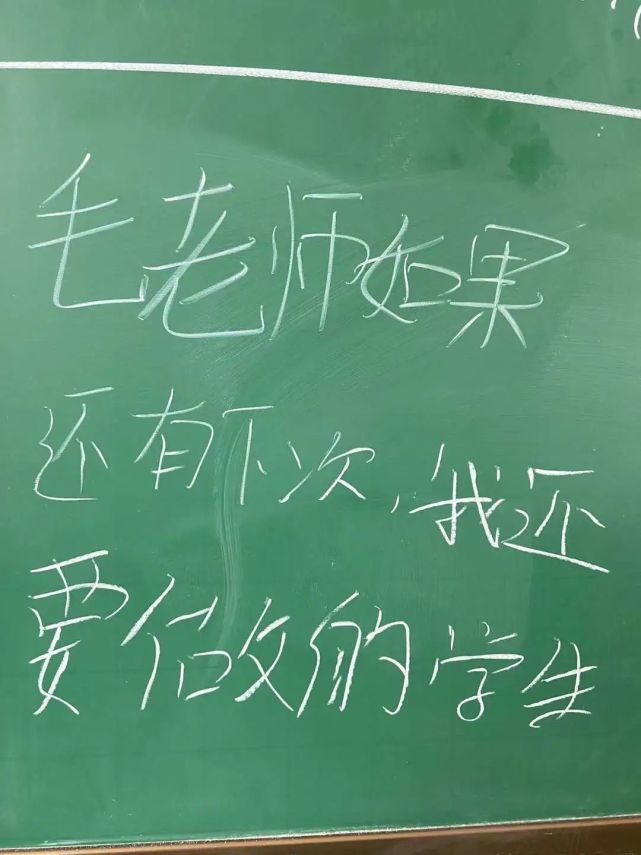 毛老师如果
还有下次,我还
要做的学生